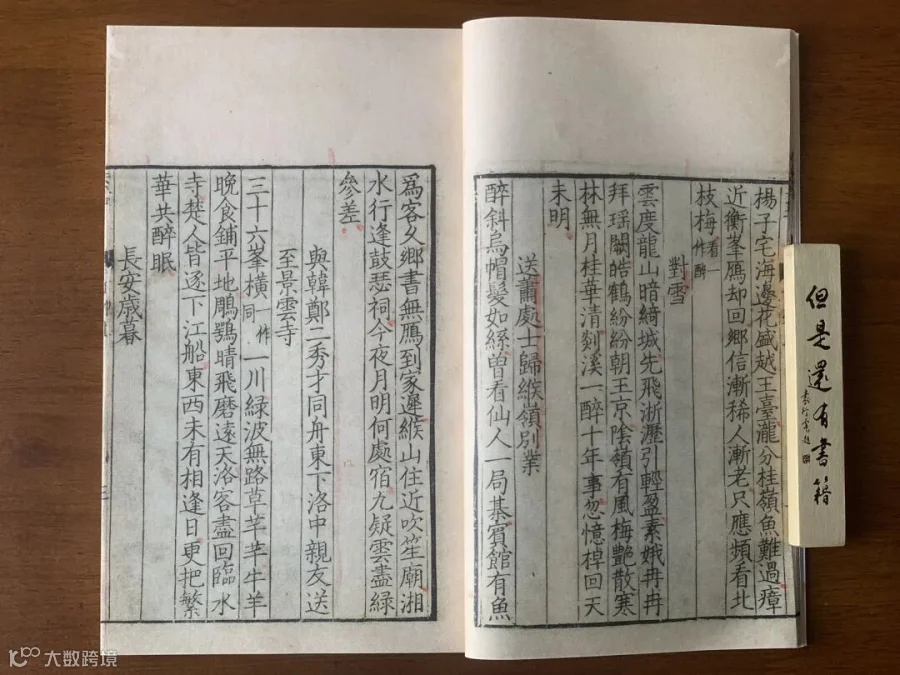 楊子宅海邊花盛越王臺瀧分桂嶺魚難過瘴
近衡峯鴈却回鄉信漸稀人漸老只應頻看北
枝梅看一作醉
對雪
雲度龍山暗綺城先飛淅瀝引輕盈素娥冉冉
拜瑶闕皓鶴紛紛朝玉京陰嶺看風梅艶散寒
林無月桂華清剡溪一醉十年事忽憶棹回天
未明
送蕭處士歸緱嶺別業
醉斜烏帽髮如絲曽看仙人一局棊賓館有魚
爲客久鄉書無鴈到家遲緱山住近吹笙廟湘
水行逢鼓瑟祠今夜月明何處宿九疑雲盡緑
參差
與韓鄭二秀才同舟東下洛中親友送
至景雲寺
三十六峯橫一作同一川緑波無路草芊芊牛羊
晚食鋪平地鵰鶚晴飛磨遠天洛客盡回臨水
寺楚人皆逐下江船東西未有相逢日更把繁
華共醉眠
長安歳暮
三
但是還有書籍
大数跨境